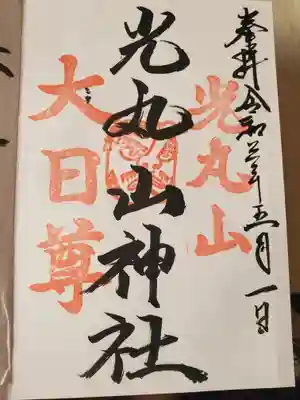 奉拝 令和元年五月一日
光丸山
光丸山神社
大日尊